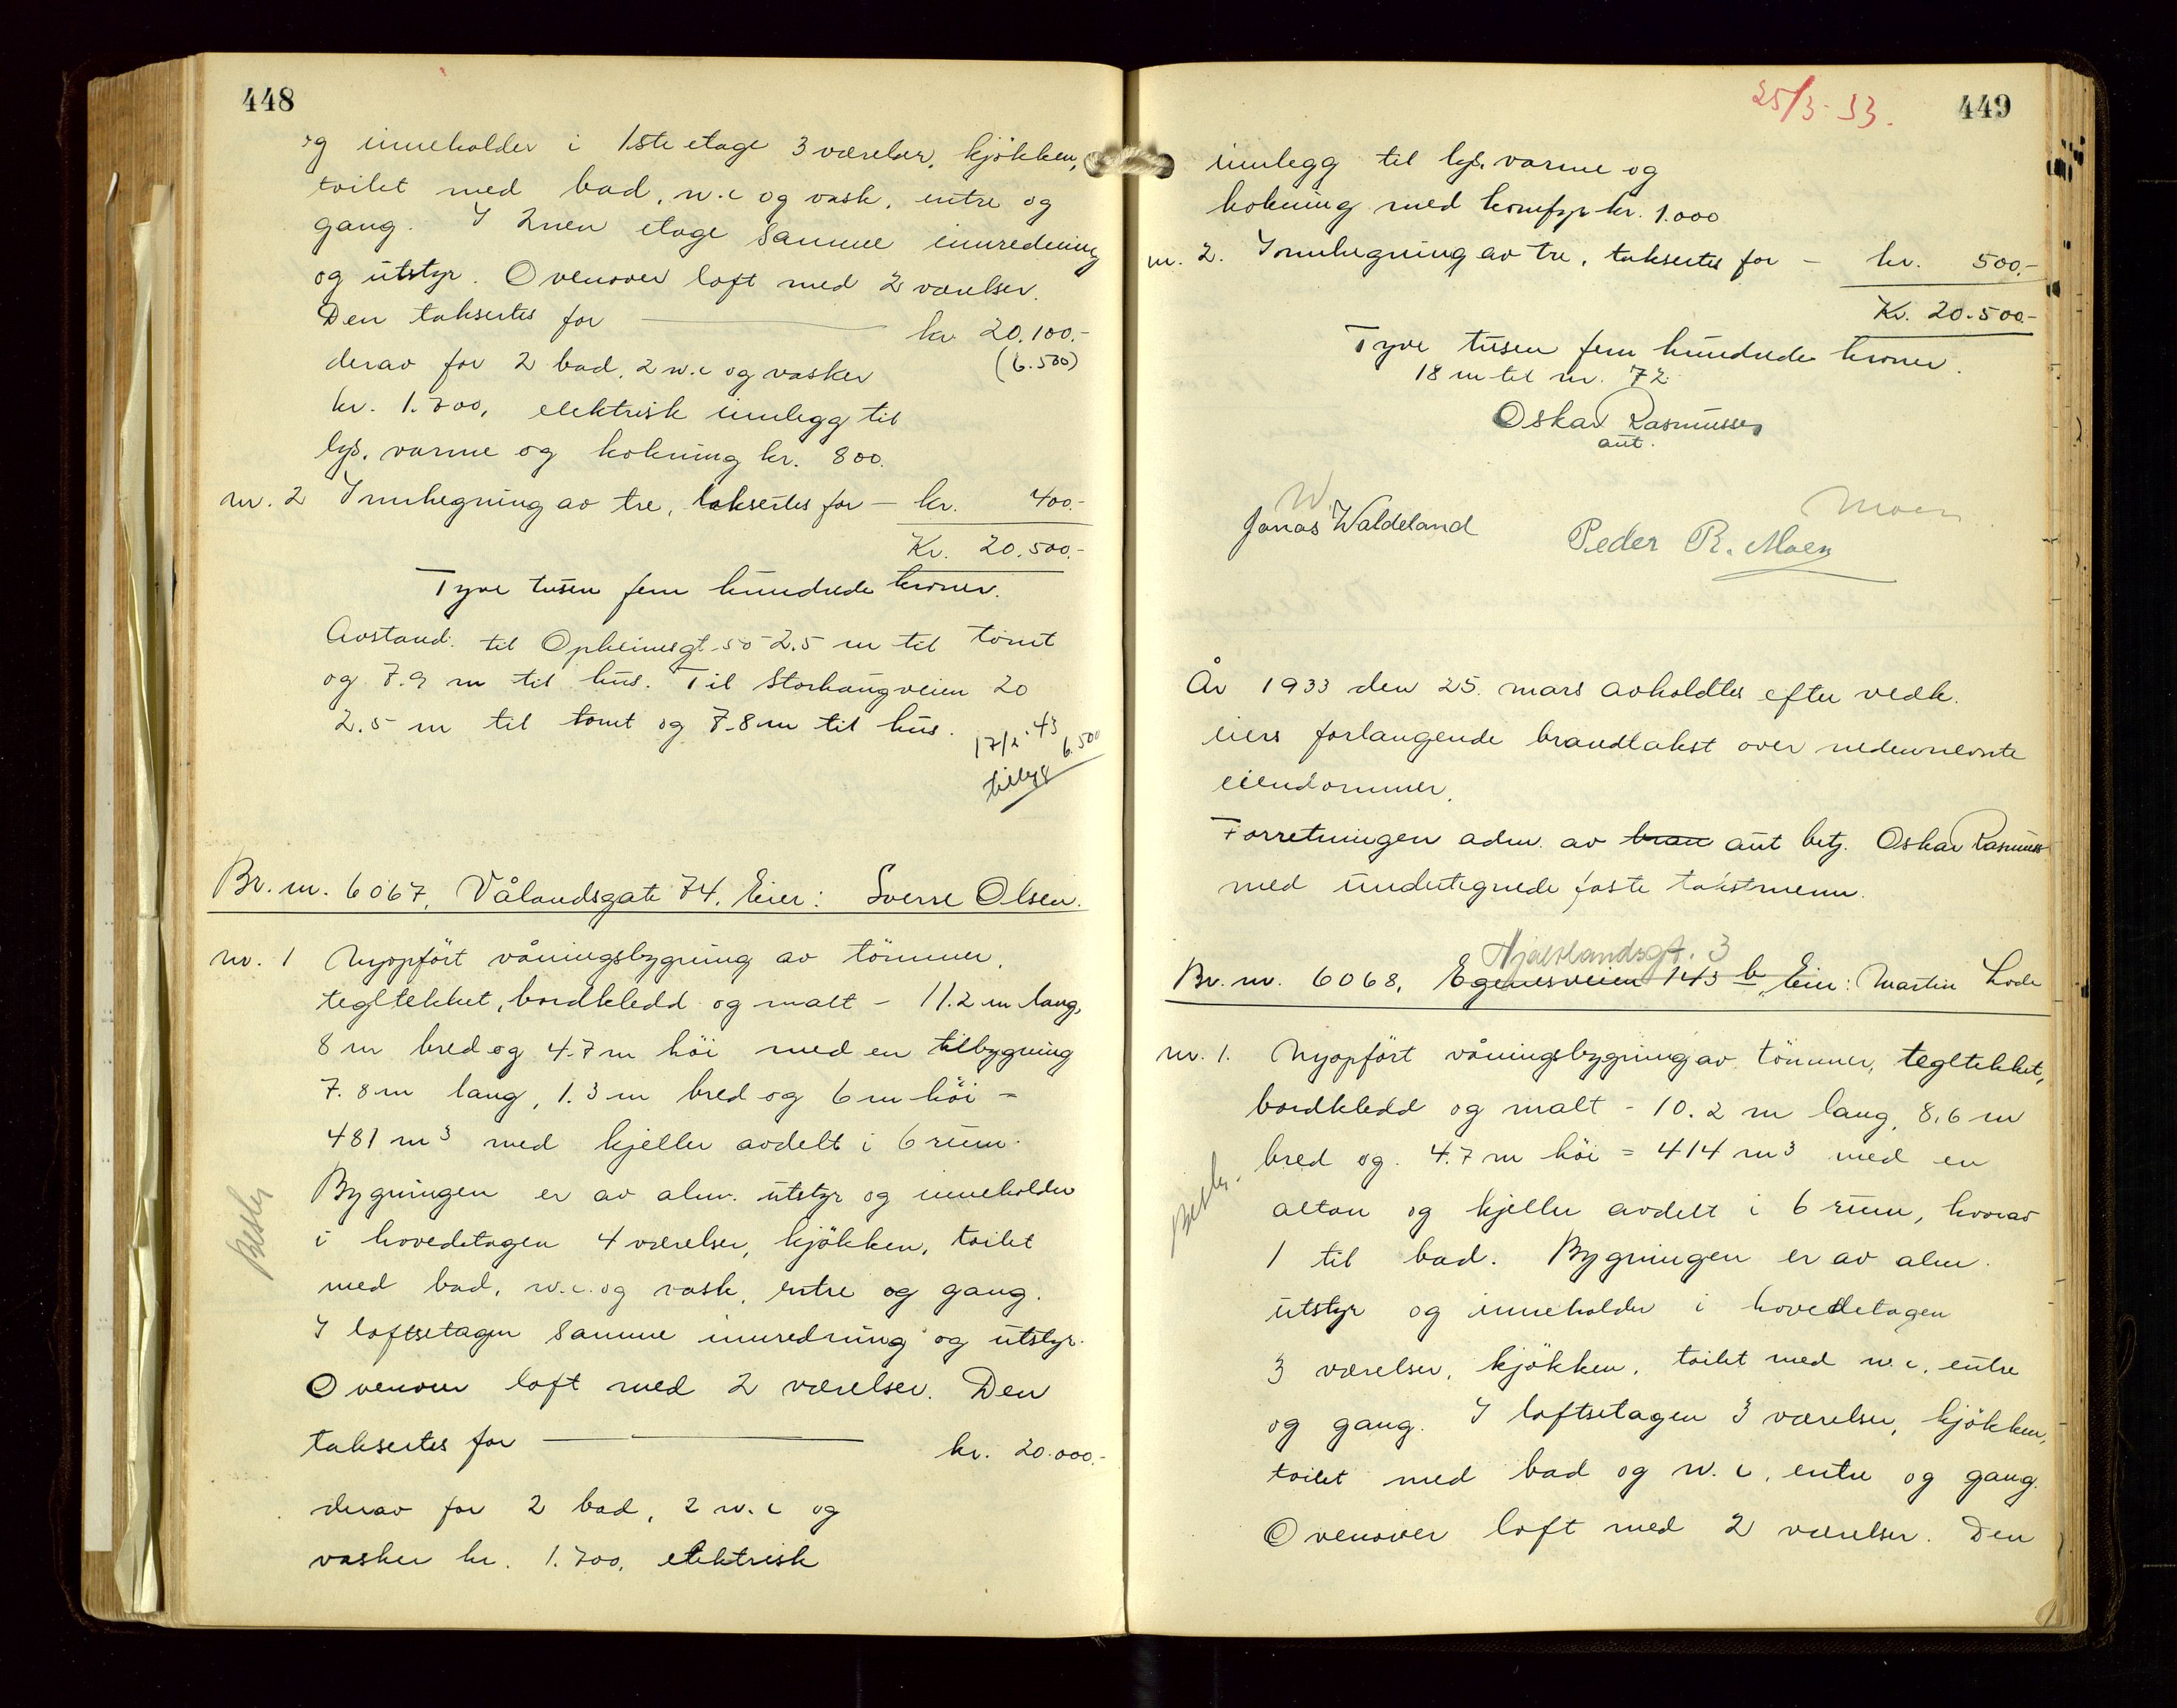 448
og inneholder i 1ste etage 3 værelser, kjökken,
toilet med bad, w.c og vask, entre og
gang. I 2nen etage samme innredning
og utstyr. Ovenover loft med 2 værelser.
Den taksertes for — kr. 20.100.-
derav for 2 bad, 2 w.c og vasker (6.500)
kr. 1.700, elektrisk innlegg til
lys, varme og kokning kr. 800.
nr. 2 Innhegning av tre, taksertes for — kr. 400.-
Kr. 20.500.-
Tyve tusen fem hundrede kroner.
Avstand: til Opheimsgt. 50 2.5 m til tomt
og 7.9 m til hus. Til Storhaugveien 20
2.5 m til tomt og 7.8 m til hus.
17/2.43
tilbygg 6.500
Br. nr. 6067, Vålandsgate 74, Eier: Sverre Olsen.
nr. 1 Nyopfört våningsbygning av tömmer,
tegltekket, bordkledd og malt - 11.2 m lang,
8 m bred og 4.7 m höi med en tilbygning
7.8 m lang, 1.3 m bred og 6 m höi =
481 m3 med kjeller avdelt i 6 rum.
Bygningen er av alm. utstyr og inneholder
i hovedetagen 4 værelser, kjökken, toilet
med bad, w.c. og vask, entre og gang.
I loftsetagen samme innredning og utstyr.
Ovenover loft med 2 værelser. Den
taksertes for — kr. 20.000.-
derav for 2 bad, 2 w.c og
vasker kr. 1.700, elektrisk
25/3-33.
449
innlegg til lys, varme og
kokning med komfyr kr. 1.000
nr. 2. Innhegning av tre, taksertes for - kr. 500.-
Kr. 20.500.-
Tyve tusen fem hundrede kroner.
18 m til nr. 72
Oskar Rasmussen
aut.
W
Moen
Jonas Waldeland
Peder R. Moen
År 1933 den 25. mars avholdtes efter vedk.
eiers forlangende brandtakst over nedennevnte
eiendommer.
Forretningen adm. av bran aut betj. Oskar Rasmuss
med undertegnede faste takstmenn.
Hjaltlandsgt. 3
Br. nr. 6068, Egenesveien 143 b, Eier: Martin Lode
nr. 1. Nyopfört våningsbygning av tömmer, tegltekket,
bordkledd og malt - 10.2 m lang, 8,6 m
bred og 4.7 m höi = 414 m3 med en
altan og kjeller avdelt i 6 rum, hvorav
1 til bad. Bygningen er av alm.
utstyr og inneholder i hovedetagen
3 værelser, kjökken, toilet med w.c, entre
og gang. I loftsetagen 3 værelser, kjökken,
toilet med bad og w.c, entre og gang.
Ovenover loft med 2 værelser. Den